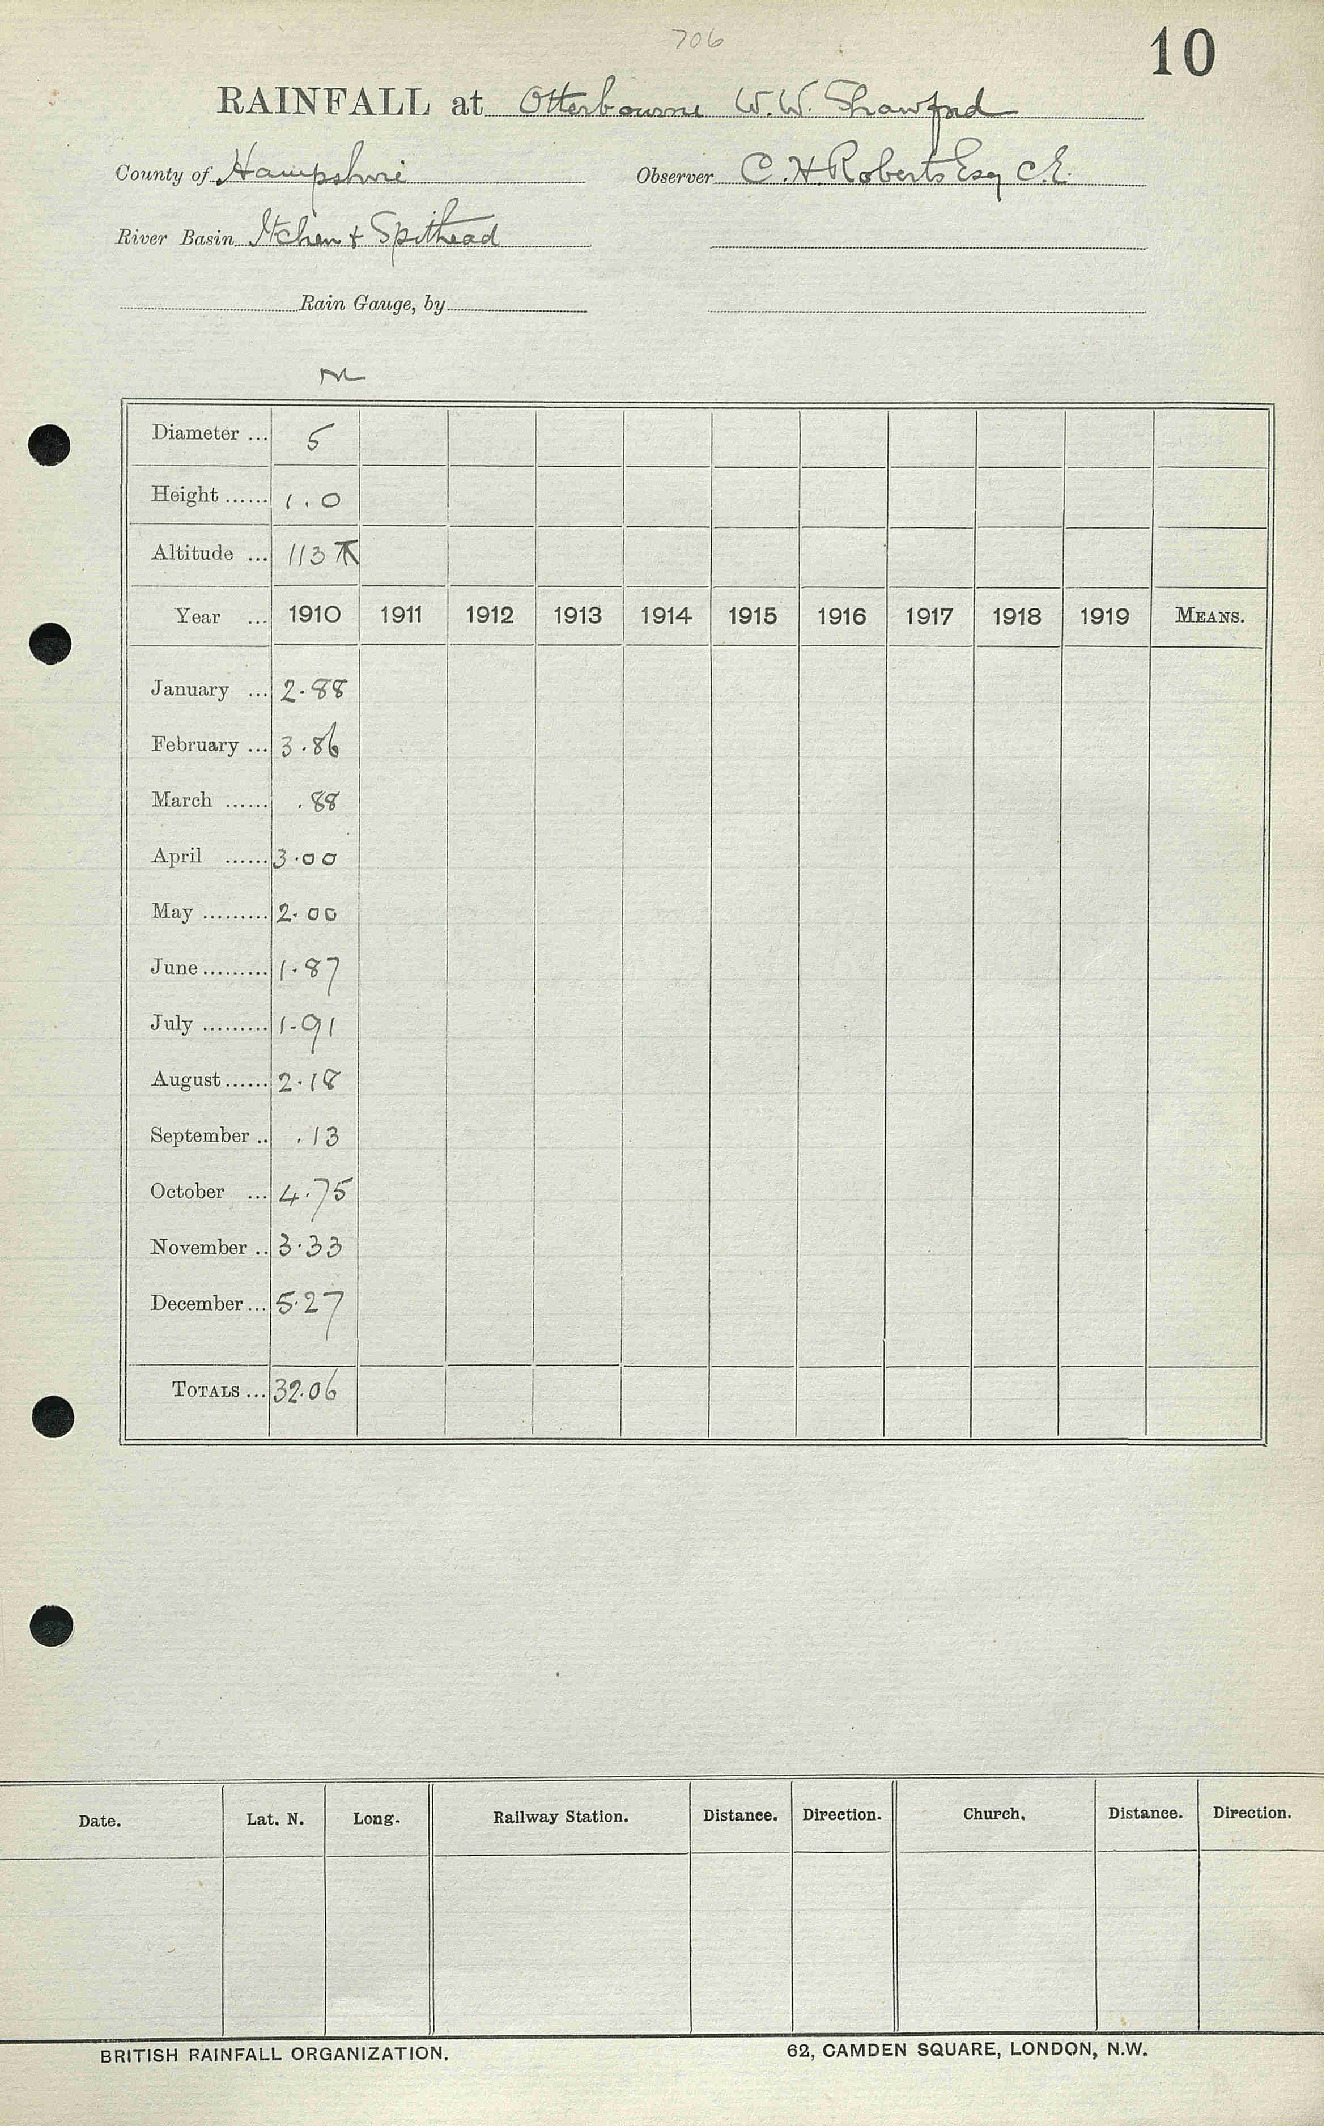 706
10
RAINFALL at Otterbourne W.W. Shawford
County of Hampshire Observer C. H. Roberts Esq C.E.
River Basin Itchen + Spithead
Rain Gauge, by
M
Diameter ... 5
Height ...... 1.0
Altitude ... 113
Year ... 1910 1911 1912 1913 1914 1915 1916 1917 1918 1919 MEANS.
January ... 2.88
February ... 3.86
March ...... .88
April ...... 3.00
May ......... 2.00
June ......... 1.87
July ......... 1.91
August ...... 2.18
September .. .13
October ... 4.75
November .. 3.33
December ... 5.27
TOTALS ... 32.06
Date. Lat. N. Long. Railway Station. Distance. Direction. Church. Distance. Direction.
BRITISH RAINFALL ORGANIZATION. 62, CAMDEN SQUARE, LONDON, N.W.